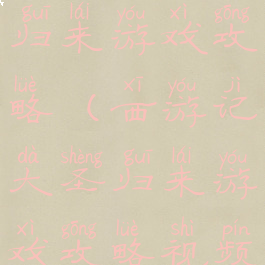 guī lái yóu xì gōng
归来游戏攻
lüè xī yóu jì
略（西游记
dà shèng guī lái yóu
大圣归来游
xì gōng lüè shì pín
戏攻略视频